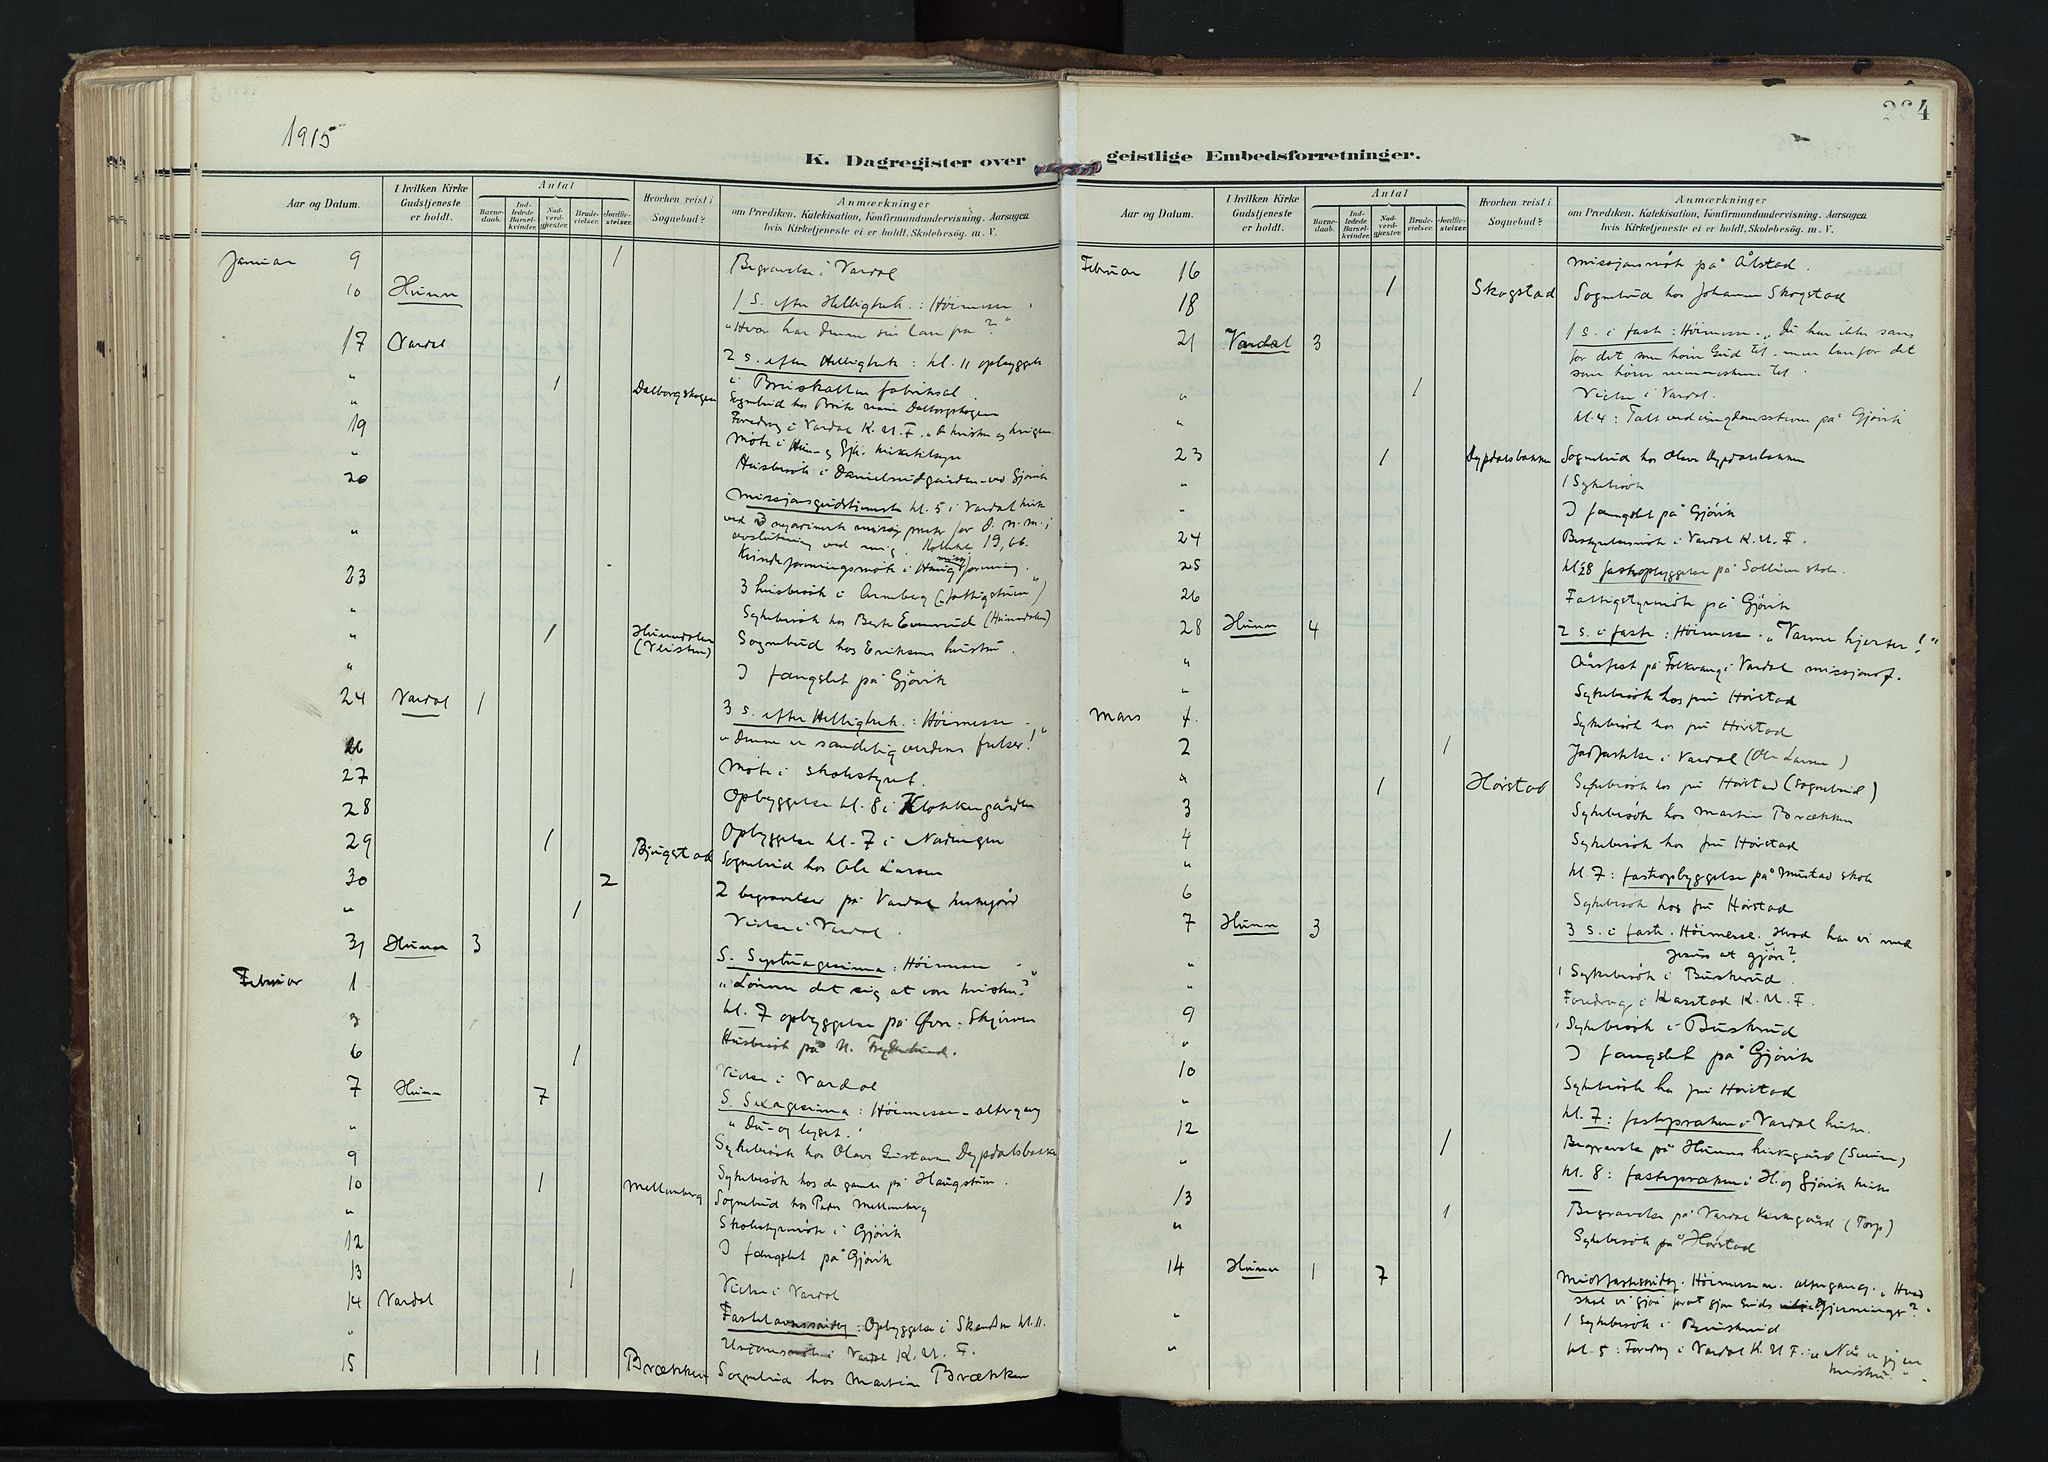 1915
284
K. Dagregister over geistlige Embedsforretninger.
Aar og Datum.
I hvilken Kirke Gudstjeneste er holdt.
Antal
Barnedaab.
Indledede Barselkvinder.
Nadverdgjæster.
Brudevielser.
Jordfæstelser.
Hvorhen reist i Sognebud?
Anmærkninger
om Prædiken, Katekisation, Konfirmandundervisning. Aarsagen
hvis Kirketjeneste ei er holdt. Skolebesøg. m. V.
Januar 9 1 Begravelse i Vardal
10 Hunn 1 S. efter Helligtrek.: Höimesse.
"Hvor har denne sin lære fra?"
17 Vardal 2 s. efter Helligtrek: kl. 11 opbyggels
i fabriksal
" 1 Dalborgskogen Sognebud hos Dalborgskogen
" Foredrag i Vardal K. U. F.
19 Möte i Hun- og Gjk.
" Husbesök i Danielsrudgården ved Gjövik
20 Missjonsgudstjeneste kl. 5 i Vardal kirke
19,66.
" Kvindeforeningsmöte i forening.
23 3 husbesök i
" Sykebesök hos Berte (Hunndalen)
" 1 Hunndalen Sognebud hos Eriksens hustru.
" I fængslet på Gjövik
24 Vardal 1 3 s. efter Helligtrek.: Höimesse.
"Denne er sandelig verdens frelser!"
26 Möte i skolestyret.
27 Opbyggelse kl. 8 i Klokkergården
28 Opbyggelse kl. 7 i
29 1 Bjugstad Sognebud hos Ole Larsen
30 2 2 begravelser på Vardal kirkegård
" 1 Vielse i Vardal.
31 Hunn 3 S. Septuagesima: Höimesse
"Lönner det sig at være kristen?"
Februar 1 kl. 7 opbyggelse på Övre Skjerven
3 Husbesök på N.
6 1 Vielse i Vardal
7 Hunn 7 S. Sexagesima: Höimesse - altergang
"Du - og lyset."
" Sykebesök hos Olave Gustavsen Dypdalsbakken
9 Sykebesök hos de gamle på Haugstum.
10 1 Mellemberg Sognebud hos Peder Mellemberg
" Skolestyremöte i Gjövik
12 I fængslet på Gjövik
13 1 Vielse i Vardal
14 Vardal Fastelavnssöndag: Opbyggelse i kl. 11.
" i Vardal K. U. F.
15 1 Brækken Sognebud hos Martin Brækken
Aar og Datum.
I hvilken Kirke Gudstjeneste er holdt.
Antal
Barnedaab.
Indledede Barselkvinder.
Nadverdgjæster.
Brudevielser.
Jordfæstelser.
Hvorhen reist i Sognebud?
Anmærkninger
om Prædiken, Katekisation, Konfirmandundervisning. Aarsagen
hvis Kirketjeneste ei er holdt. Skolebesög. m. V.
Februar 16 missjonsmöte på Ålstad.
18 1 Skogstad Sognebud hos Johanne Skogstad
21 Vardal 3 1 s. i faste: Höimesse. "Du har ikke sans
for det som hörer Gud til - men bare for det
som hörer menneskene til.
" 1 Vielse i Vardal.
" kl. 4: Tale ved ungdomsstevne på Gjövik
23 1 Dypdalsbakken Sognebud hos Olave Dypdalsbakken
" 1 Sykebesök
" I fængslet på Gjövik
24 Bestyrelsesmöte i Vardal K. U. F.
25 kl. 8 fasteopbyggelse på Sollien skole.
26 Fattigstyremöte på Gjövik
28 Hunn 4 2 s. i faste: Höimesse. "Varme hjerter!"
" Årsfest på Folkvang i Vardal missjonsf.
" Sykebesök hos fru Hörstad
Mars 1. Sykebesök hos fru Hörstad
2 1 Jordfæstelse i Vardal (Ole Larsen)
" 1 Hörstad Sykebesök hos fru Hörstad (sognebud)
3 Sykebesök hos Martin Brækken
4 Sykebesök hos fru Hörstad
" kl. 7: fasteopbyggelse på Mustad skole
6 Sykebesök hos fru Hörstad
7 Hunn 3 3 s. i faste. Höimesse. Hvad har vi med
Jesus at gjöre?
" 1 Sykebesök i Buskerud.
" Foredrag i Karstad K. U. F.
9 1 Sykebesök i Buskerud
" I fængslet på Gjövik
10 Sykebesök hos fru Hörstad
" kl. 7: fastepræken i Vardal kirke.
12 1 Begravelse på Hunns kirkegård
" kl. 8: fastepræken i H. og Gjövik kirke
13 1 Begravelse på Vardal kirkegård (Torp)
" Sykebesök på Hörstad
14 Hunn 1 7 Midtfastesöndag. Höimesse m. altergang. "Hvad
skal vi gjöre forat gjöre Guds gjerninger?"
" 1 Sykebesök i Buskerud
" kl. 5: Foredrag i Vardal K. U. F.: "Når er jeg en
kristen."